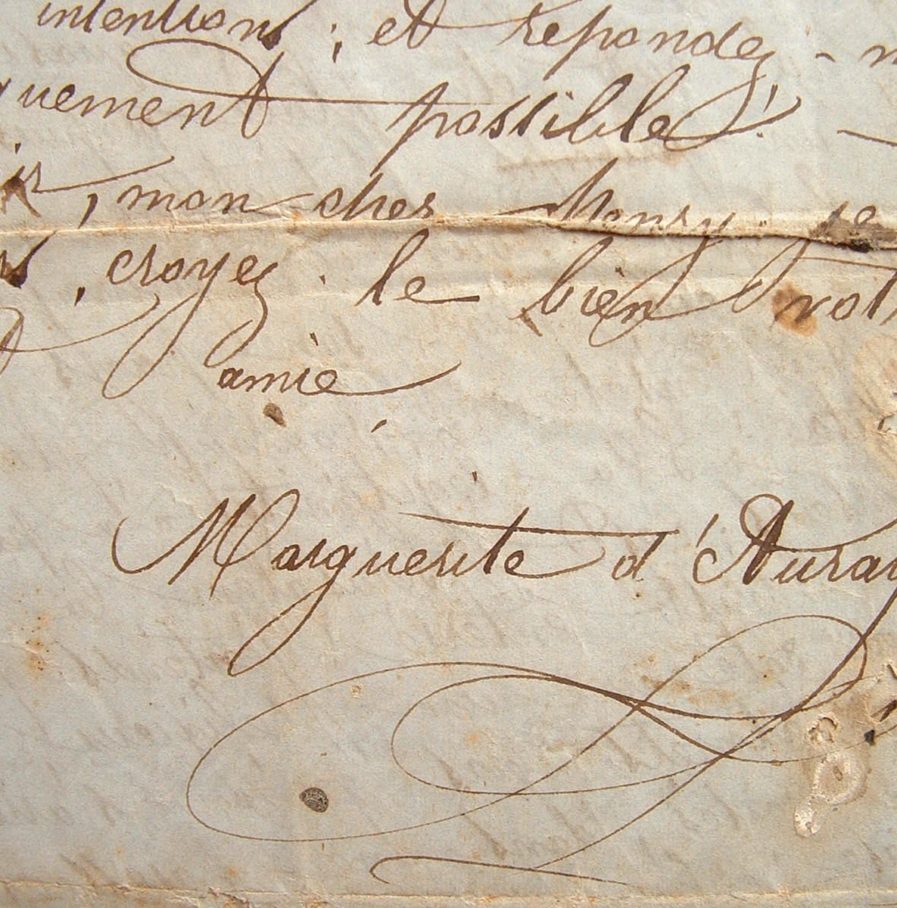 intentions ; et répondez - 
quement possible !
, mon cher Henry, je
, croyez le bien vot
amie
Marguerite d'Aura